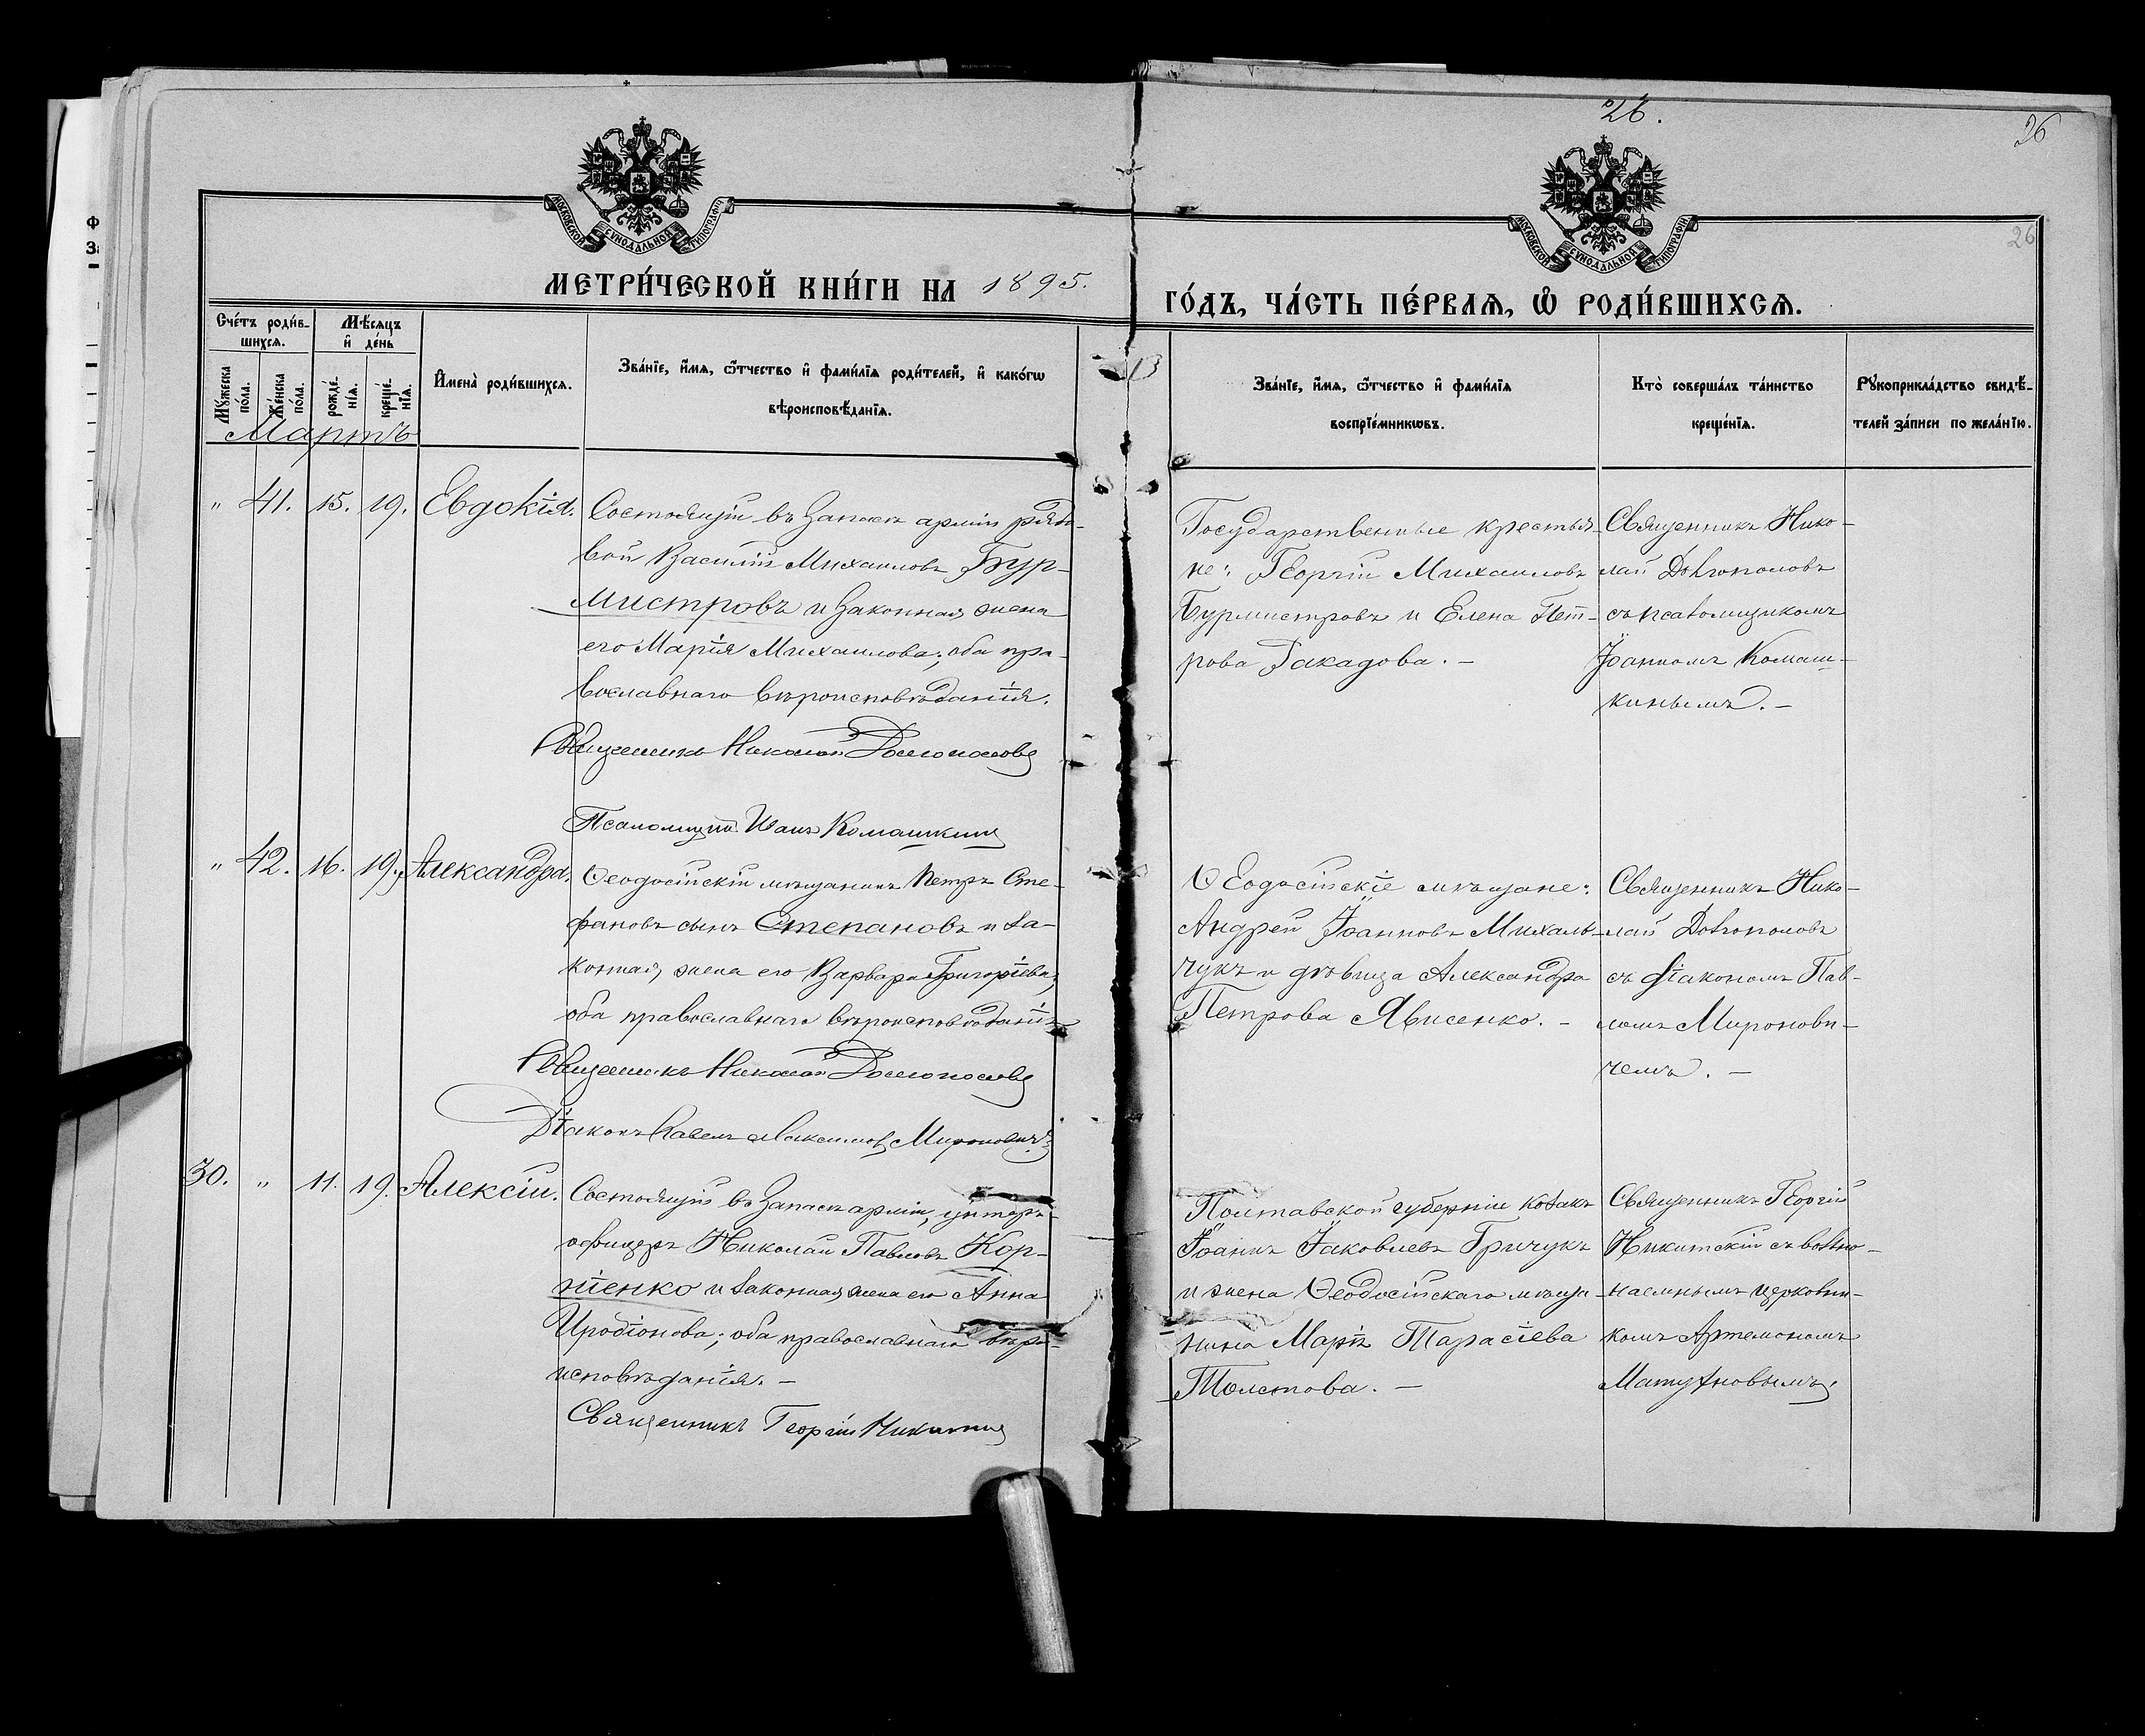 26.
26
26
МОСКОВСКОЙ СУНОДАЛЬНОЙ ТИПОГРАФІИ
МОСКОВСКОЙ СУНОДАЛЬНОЙ ТИПОГРАФІИ
МЕТРИ́ЧЕСКОЙ КНИ́ГИ НА 1895.
ГО́ДЪ, ЧА́СТЬ ПЕ́РВАѦ, Ѡ҆ РОДИ́ВШИХСѦ.
Сче́тъ роди́в-
шихсѧ.
Мѣ́сѧцъ
и҆ де́нь
Мꙋ́жеска по́ла.
Же́нска по́ла.
рожде́-нїѧ.
креще́-нїѧ.
И҆мена̀ роди́вшихсѧ.
Зва́нїе, и҆́мѧ, ѻ҆́тчество и҆ фами́лїѧ роди́телей, и҆ како́гѡ
вѣроисповѣ́данїѧ.
13
Зва́нїе, и҆́мѧ, ѻ҆́тчество и҆ фами́лїѧ
воспрїе́мникѡвъ.
Кто̀ соверша́лъ та́инство
креще́нїѧ.
Рꙋкоприкла́дство свидѣ́-
телей за́писи по жела́нїю.
Мартъ
" 41. 15. 19. Евдокія.
Состоящій въ запасѣ арміи рядо-
вой Василій Михаиловъ Бур-
мистровъ и законная жена
его Марія Михаилова; оба пра-
вославнаго вѣроисповѣданія.
Священникъ Николай
Псаломщикъ Иванъ Комашкинъ
Государственные крестья-
не: Георгій Михаиловъ
Бурмистровъ и Елена Пет-
рова
Священникъ Нико-
лай
съ псаломщикомъ
Іоанномъ Комаш-
кинымъ. –
" 42. 16. 19. Александра.
Ѳеодосійскій мѣщанинъ Петръ Сте-
фановъ сынъ Степановъ и за-
конная жена его Варвара Григоріева;
оба православнаго вѣроисповѣданія
Священникъ Николай
Діаконъ Павелъ Максимовъ Мироновичъ
Ѳеодосійскіе мѣщане:
Андрей Іоанновъ Михаль-
чукъ и дѣвица Александра
Петрова Явисенко. –
Священникъ Нико-
лай
съ діакономъ Пав-
ломъ Миронови-
чемъ. –
30. " 11. 19. Алексій.
Состоящій въ запасѣ арміи, унтеръ-
офицеръ Николай Павловъ Кор-
ніенко и законная жена его Анна
Иродіонова; оба православнаго вѣро-
исповѣданія. –
Священникъ Георгій
Полтавской губерніи козакъ
Іоаннъ Іаковлевъ Гричукъ
и жена Ѳеодосійскаго мѣща-
нина Марія Тарасіева
Толстова. –
Священникъ Георгій
Никитскій съ вольно-
наемнымъ церковни-
комъ Артемономъ